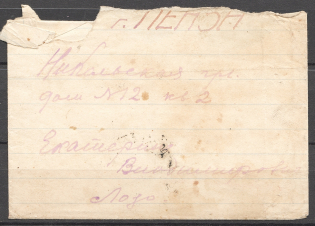 г. ПЕНЗА
Никольская ул.
дом № 12 кв 2
Екатерине
Владимировне
Лозо